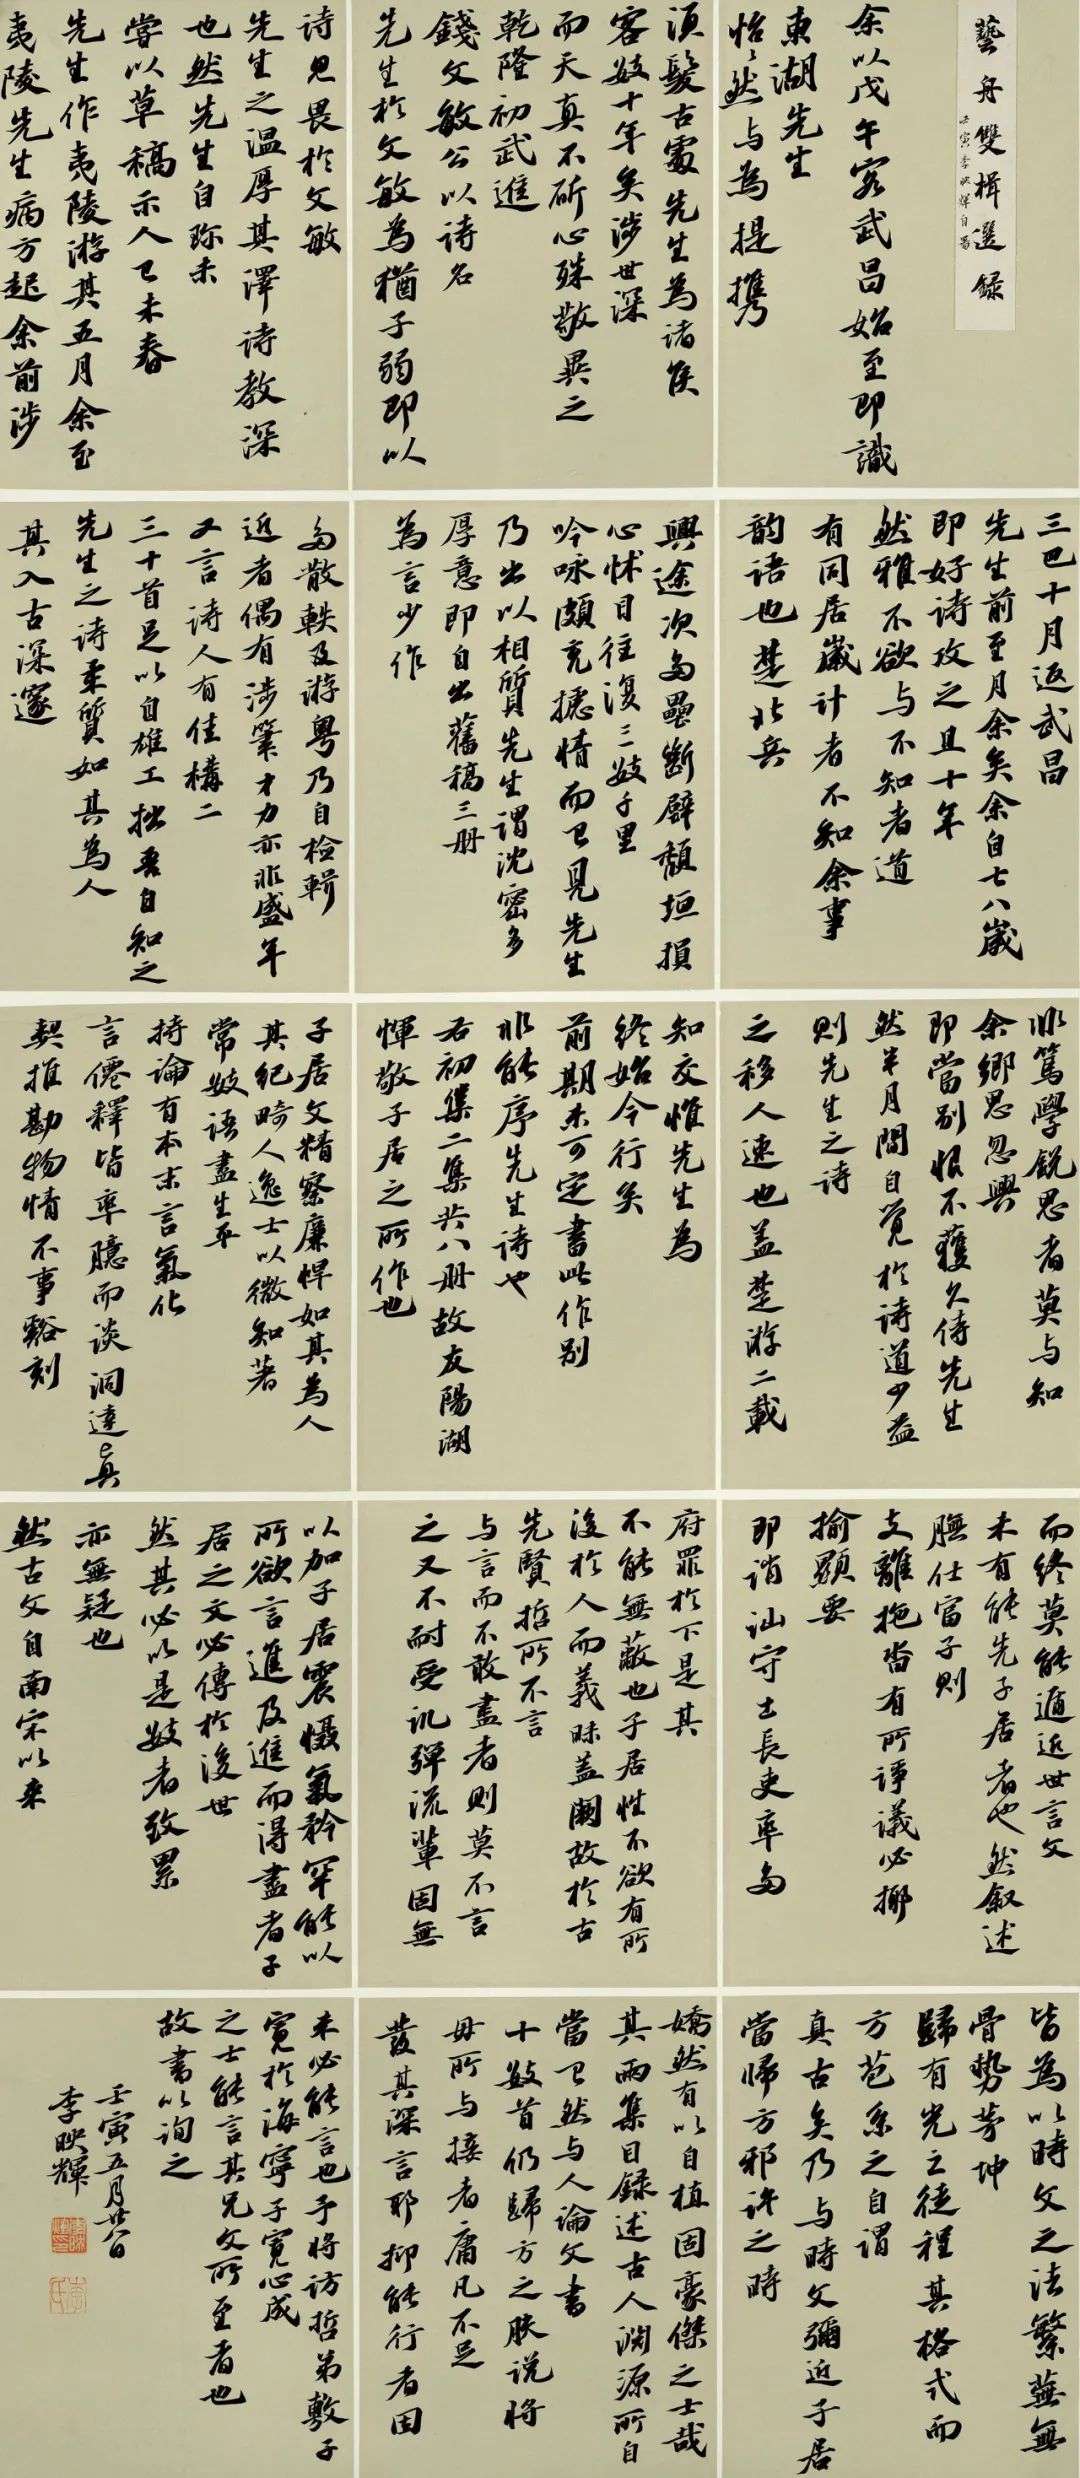 藝舟雙楫選録
壬寅李映輝自署
余以戊午客武昌始至即識
東湖先生
怡怡然与為提携
須髮古處先生為諸侯
客數十年矣涉世深
而天真不斫心殊敬異之
乾隆初武進
錢文敏公以诗名
先生於文敏為猶子弱即以
诗見畏於文敏
先生之温厚其澤诗教深
也然先生自珎未
嘗以草稿示人己未春
先生作夷陵游其五月余至
夷陵先生病方起余前涉
三巴十月返武昌
先生前至月余矣余自七八歲
即好诗攻之且十年
然雅不欲与不知者道
有同居歲计者不知余事
韵语也楚北兵
興途次多壘斷壁頽垣損
心怵目往復三數千里
吟咏頗充攄情而已見先生
乃出以相質先生謂沈密多
厚意即自出舊稿三册
為言少作
多散軼及游粤乃自检輯
近者偶有涉筆才力亦非盛年
又言诗人有佳構二
三十首足以自雄工拙吾自知之
先生之诗柔質如其為人
其入古深邃
非篤學鋭思者莫与知
余鄉思忽興
即當别恨不獲久侍先生
然半月間自覺於诗道少益
則先生之诗
之移人速也盖楚游二載
知交惟先生為
终始今行矣
前期未可定書此作别
非能序先生诗也
右初集二集共八册故友陽湖
惲敬子居之所作也
子居文精察廉悍如其為人
其纪畸人逸士以微知著
常數语盡生平
持論有本末言氣化
言僊釋皆率臆而谈洞達真
契推勘物情不事谿刻
而终莫能遁近世言文
未有能先子居者也然叙述
膴仕富子則
支離拖沓有所諍議必揶
揄顯要
即诮讪守土長吏率多
府罪於下是其
不能無蔽也子居性不欲有所
後於人而義昧盖闕故於古
先賢哲所不言
与言而不敢盡者則莫不言
之又不耐受讥彈流輩固無
以加子居震慑氣矜罕能以
所欲言進及進而得盡者子
居之文必傳於後世
然其必以是數者致累
亦無疑也
然古文自南宋以来
皆為以時文之法繁蕪無
骨势茅坤
歸有光之徒程其格式而
方苞系之自谓
真古矣乃与時文彌近子居
當歸方邪许之時
矯然有以自植固豪傑之士哉
其兩集目録述古人渊源所自
當已然与人論文書
十數首仍歸方之膚说將
毋所与接者庸凡不足
發其深言耶抑能行者固
未必能言也予将访哲弟敷子
寛於海寧子寛心成
之士能言其兄文所至者也
故書以询之
壬寅五月廿八日
李映輝